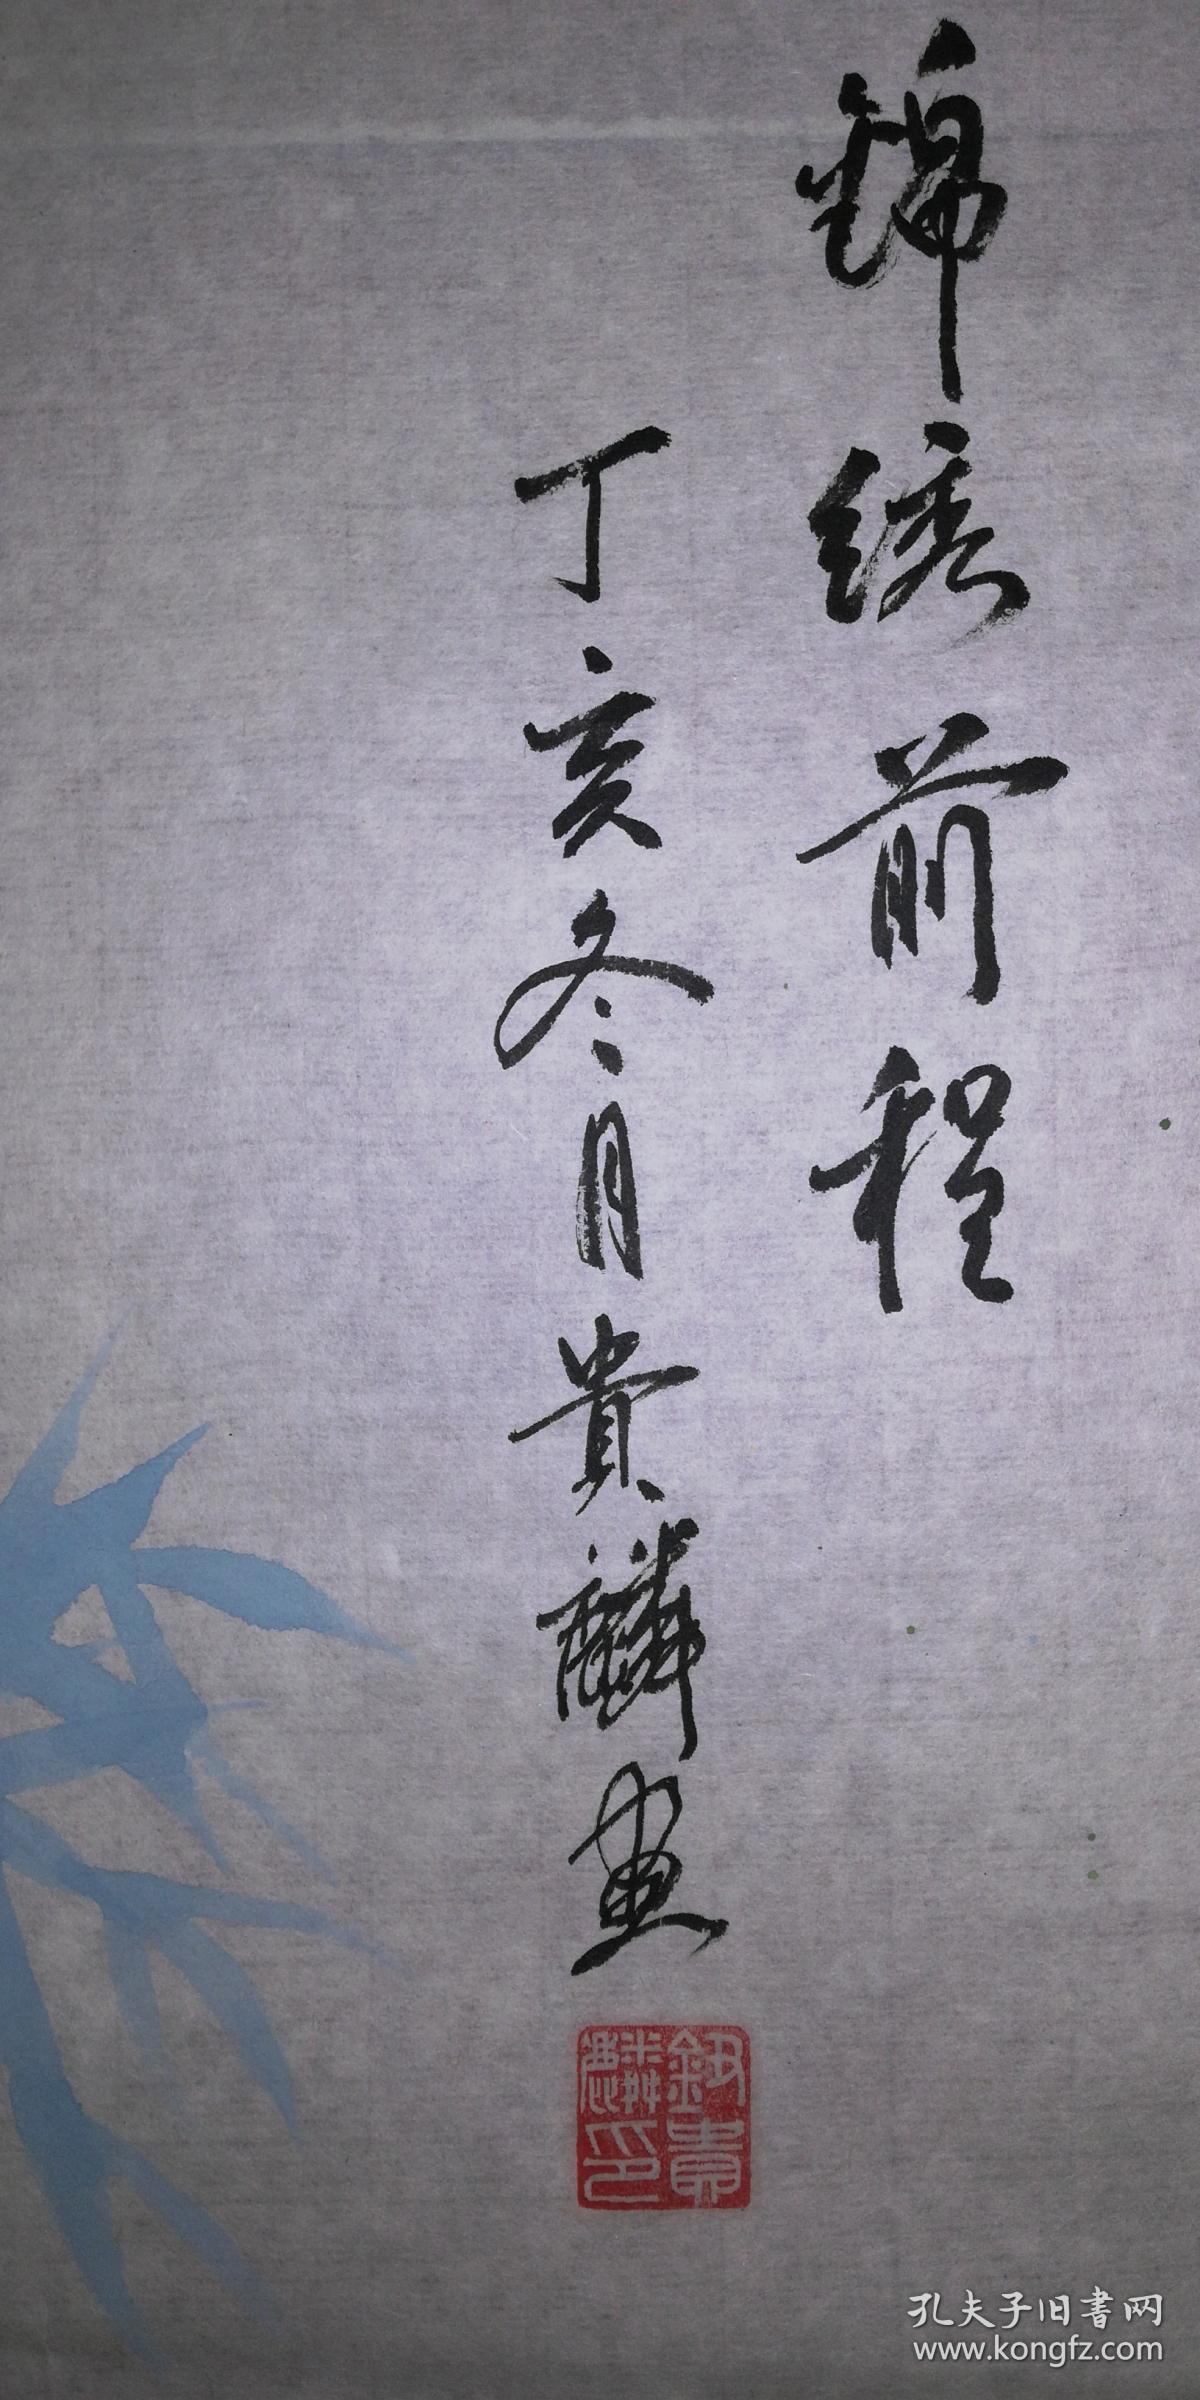 錦绣前程
丁亥冬月貴麟画
貴麟印
孔夫子旧书网
www.kongfz.com